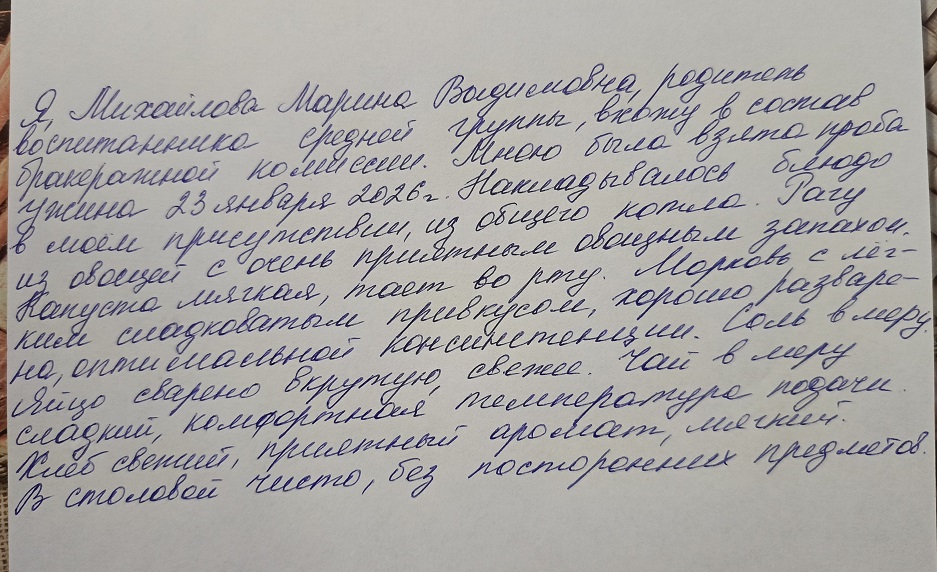 Я, Михайлова Марина Вадимовна, родитель
воспитанника средней группы, вхожу в состав
бракеражной комиссии. Мною была взята проба
ужина 23 января 2026г. Накладывалось блюдо
в моём присутствии, из общего котла. Рагу
из овощей с очень приятным овощным запахом.
Капуста мягкая, тает во рту. Морковь с лёг-
ким сладковатым привкусом, хорошо разваре-
на, оптимальной консинстенции. Соль в меру.
Яйцо сварено вкрутую, свежее. Чай в меру
сладкий, комфортная температура подачи.
Хлеб свежий, приятный аромат, мягкий.
В столовой чисто, без посторонних предметов.